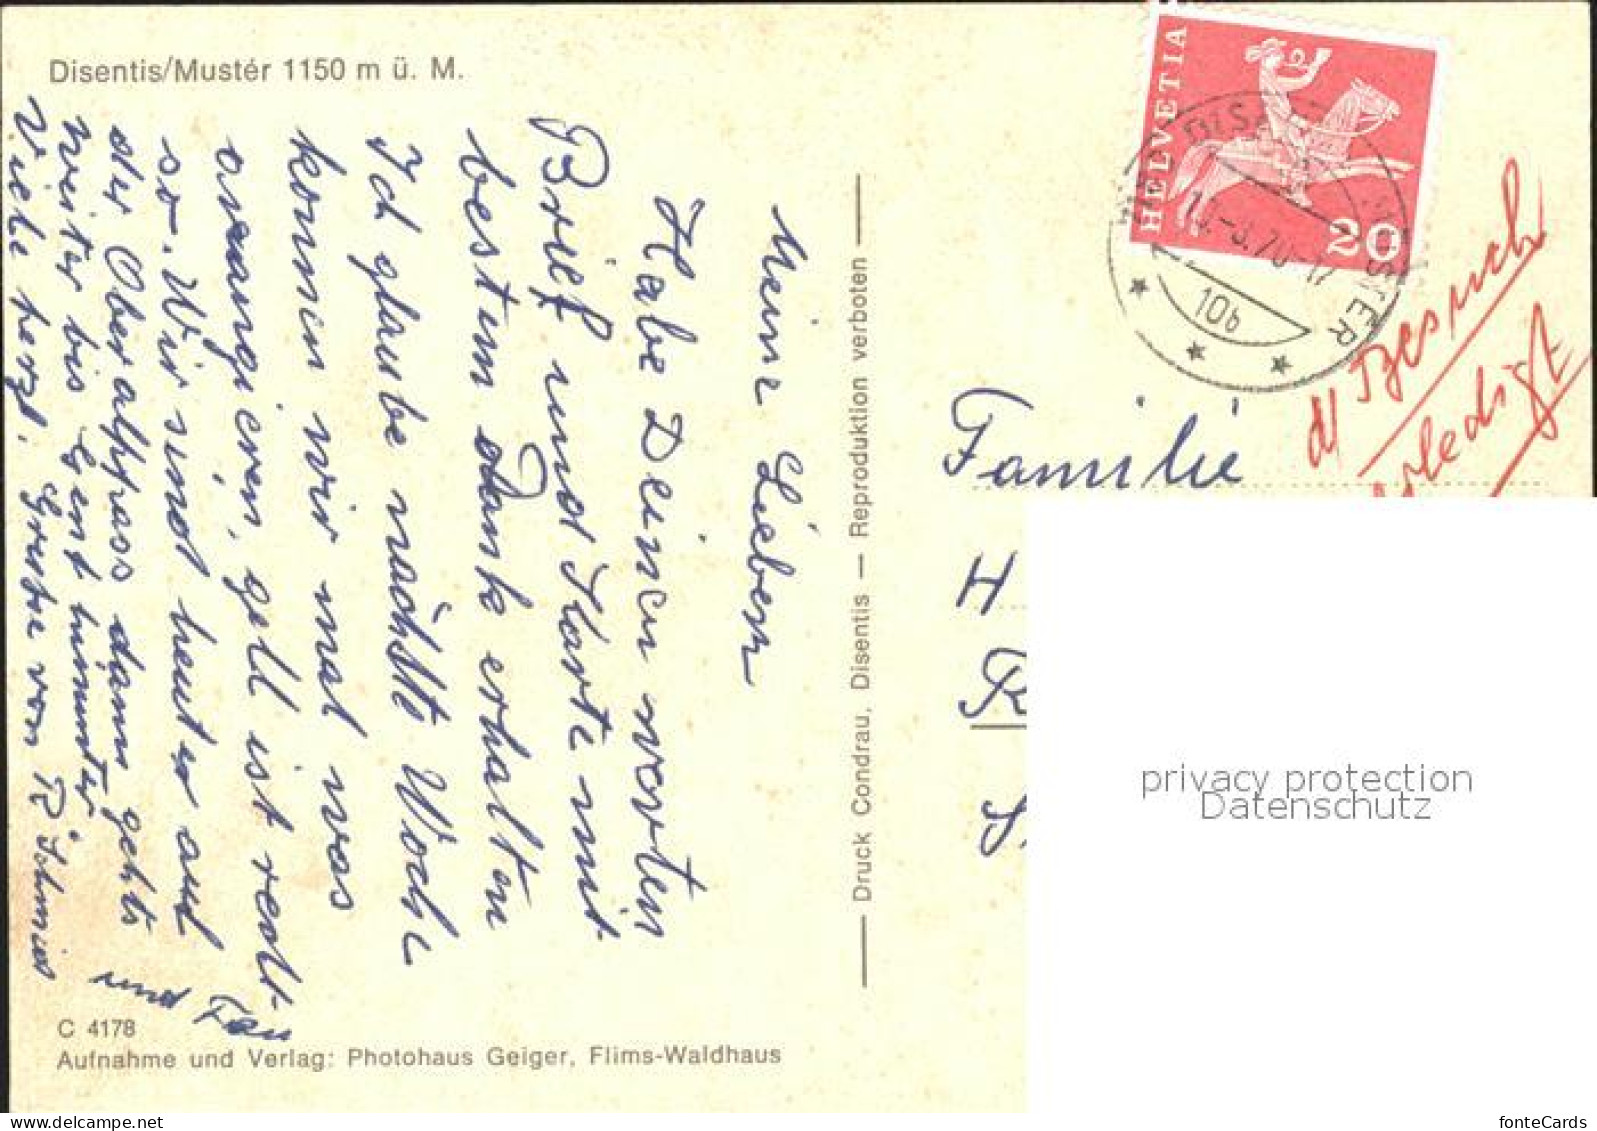 Disentis/Mustér 1150 m ü. M.
Meine Lieben
Habe Deinen werten
Brief und Karte mit
bestem Dank erhalten
Ich glaube nächste Woche
kommen wir mal was
arrangieren, gell ist recht.
so. Wir sind heute auf
der Oberalppass dann gehts
weiter bis Genf hinunter
Viele herzl. Grüsse von R. Schmid
und Frau
C 4178
Aufnahme und Verlag: Photohaus Geiger, Flims-Waldhaus
— Druck Condrau, Disentis — Reproduktion verboten —
HELVETIA
20
-3.70-17
10b
Familie
H
R
d/ Besuch
erledigt
privacy protection
Datenschutz
www.delcampe.net
fonteCards